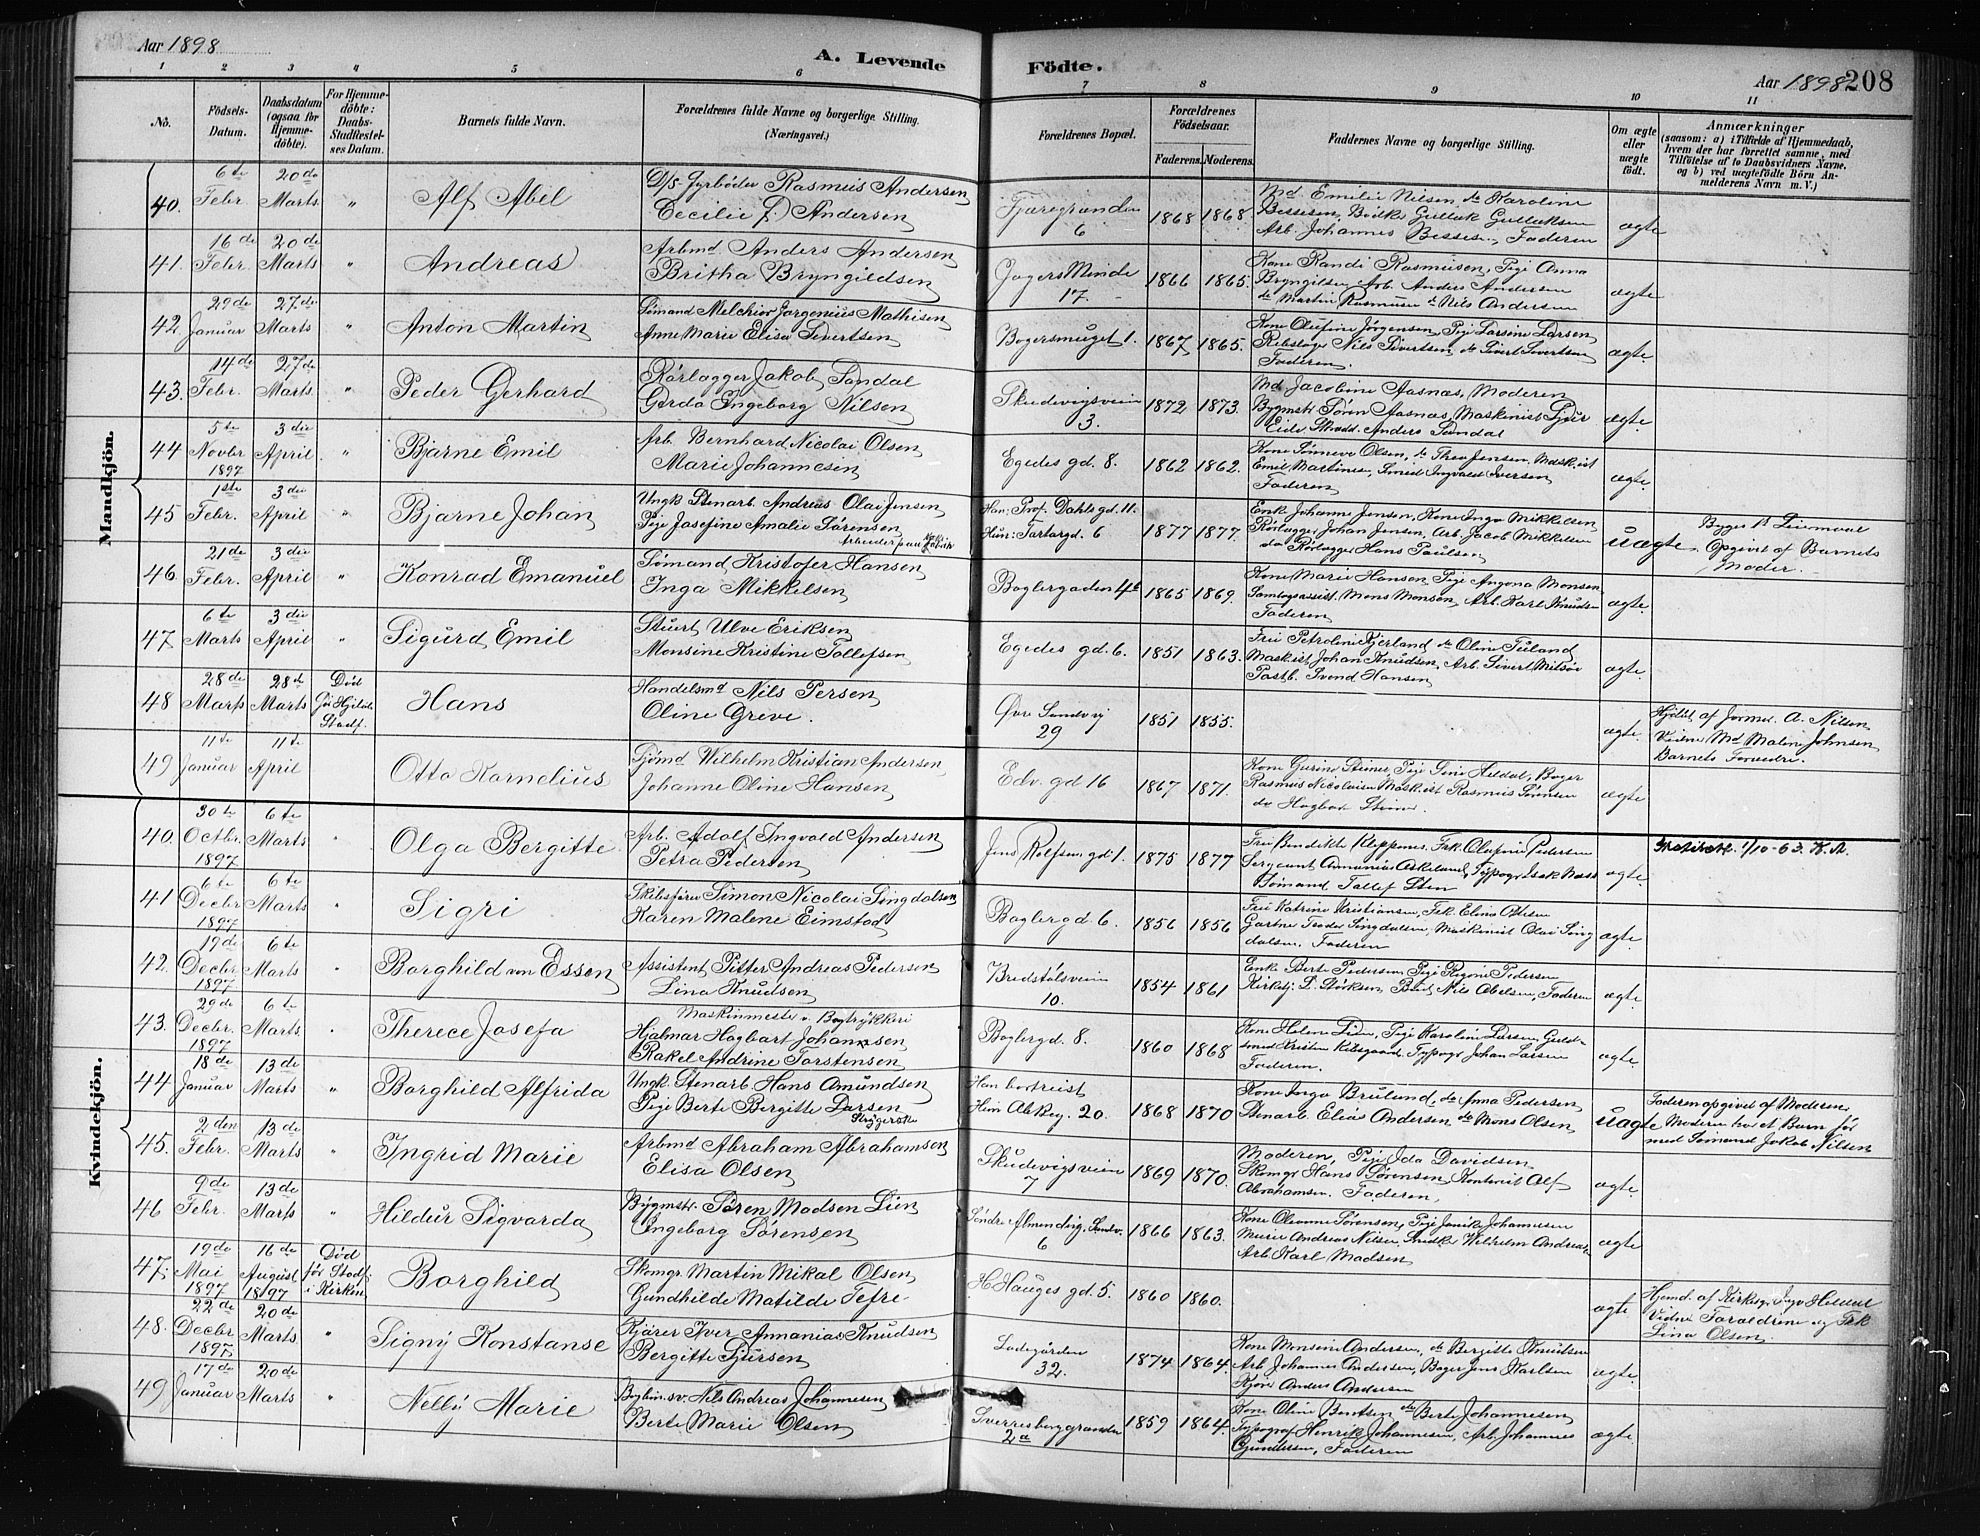 Aar 1898
A. Levende Födte.
Aar 1898 208
1 2 3 4 5 6 7 8 9 10 11
No.
Födsels-Datum.
Daabsdatum (ogsaa for Hjemme-döbte).
For Hjemme-döbte: Daabs-Stadfæstel-ses Datum.
Barnets fulde Navn.
Forældrenes fulde Navne og borgerlige Stilling.
(Næringsvei.)
Forældrenes Bopæl.
Forældrenes Födselsaar.
Faderens. Moderens.
Faddernes Navne og borgerlige Stilling.
Om ægte eller uægte födt.
Anmærkninger
(saasom: a) i Tilfælde af Hjemmedaab, hvem der har forrettet samme, med Tilföielse af to Daabsvidners Navne, og b) ved uægtefödte Börn An-melderens Navn m. V.)
Mandkjön.
40. 6te Febr 20de Marts " Alf Abel
D/s. Fyrböder Rasmus Andersen
Cecilie Andersen
6 1868 1868
Md Emilie Nilsen, do Karoline
Arb. Johannes Bessesen, Faderen
ægte
41. 16de Febr. 20de Marts " Andreas
Arbmd Anders Andersen
Britha Bryngildsen
Jægers Minde 17. 1866 1865.
Kone Randi Rasmusen, Pige Anna
Bryngildsen Arb. Anders Andersen
do Martin Rasmusen do Nils Andersen
ægte
42. 29de Januar 27de Marts " Anton Martin
Sömand Melchior Jørgenius Mathisen
Anne Marie Elisa Sivertsen
Bøgersmuget 1. 1867 1865.
Kone Olufine Jørgensen, Pige Larsine Larsen
Rebslager Nils Sivertsen, do Sivert Sivertsen
Faderen.
ægte
43. 14de Febr. 27de Marts. " Peder Gerhard
Rörlægger Jakob Sandal
Gerda Ingeborg Nilsen
Skudevigsveien 3. 1872 1873.
Md Jacobine Aasnæs, Moderen
Bygmstr Sören Aasnæs, Maskinist Sjur
Eide, Anders Sandal
ægte
44 5te Novbr 1897 3die April. " Bjarne Emil
Arb. Bernhard Nicolai Olsen
Marie Johannesen
Egedes gd. 8. 1862 1862.
Kone Sönneve Olsen, do Thea Jensen, Mask.ist
Emil Martinsen, Smed Ingvald Iversen
Faderen
ægte
45 1ste Febr. 3die April " Bjarne Johan
Ungk. Stenarb. Andreas Olai Jensen
Pige Josefine Amalie Sørensen
Han: Prof. Dahls gd. 11.
Hun: Tartargd. 6 1877 1877.
Enke Johanne Jensen, Kone Inga Mikkelsen
Rörlægger Johan Jensen, Arb. Jacob Mikkelsen
do Rörlægger Hans Paulsen
uægte.
Begges 1st Leiermaal
Opgivet af Barnets
Moder.
46. 21de Febr. 3die April " Konrad Emanuel
Sömand Kristofer Hansen
Inga Mikkelsen
Boglergaden 4b 1865 1869.
Kone Marie Hansen, Pige Angona Monsen
Mons Monsen, Arb. Karl Knudsen
Faderen
ægte
47. 6te Marts 3die April " Sigurd Emil
Stuert Ulve Eriksen
Monsine Kristine Tollefsen
Egedes gd. 6. 1851 1863.
Mask.ist Johan Knudsen, Arb. Sivert
Postb. Svend Hansen
ægte
48 28de Marts 28de Marts Död för Stadf. Hans
Handelsmd Nils Persen
Oline Greve.
Øvre Sandvig 29 1851 1855.
ægte.
Hjdbt. af Jormd. A. Nilsen
Vidne Md Malin Johnsen
Barnets Forældre.
49 11te Januar 11te April Otto Kornelius
Sjömd Wilhelm Kristian Andersen
Johanne Oline Hansen
Edv. gd 16 1867 1871.
Rasmus Nicolaisen Mask.ist Rasmus Sørensen
ægte
Kvindekjön.
40. 30te Octbr. 1897 6te Marts " Olga Bergitte
Arb. Adolf Ingvald Andersen
Petra Pedersen
Jens Rolfsens gd 1. 1875 1877
Frk. Olufine Pedersen
Sömand Tollef Sten
ægte.
1/10-63. K.A.
41 6te Decbr 1897 6te Marts " Sigri
Skibsförer Simon Nicolai Singdalsen
Karen Malene Eimstad
Boglergd. 6. 1856 1856
Fru Katrine Kristiansen, Frk. Elina
dalsen, Faderen
ægte
42. 19de Decbr. 1897 6te Marts " Borghild von Essen
Assistent Pitter Andreas Pedersen
Lina Knudsen
Bredstølsveien 10. 1854 1861
Enke Berte Pedersen, Pige Regine Pedersen
Kirkesj. L. Størksen, Bud Nils Abelsen, Faderen
ægte
43. 29de Decbr. 1897 6te Marts. " Therece Josefa
Maskinmester v. Bogtrykkeri
Hjalmar Hagbart Johannsen
Rakel Andrine Torstensen
Boglergd. 8. 1860 1868
Kone Helene Lien, Pige Karoline Larsen Guld-
smed Kristen Typogr. Johan Larsen
Faderen.
ægte
44 18de Januar 13de Marts " Borghild Alfrida
Ungk. Stenarb. Hans Amundsen
Pige Berte Bergitte Larsen
Strygerske
Han bortreist
Hun Abkey. 20. 1868 1870
Kone Inga Bruland, do Anna Pedersen
Stenarb. Elias Andersen do Mons Olsen
uægte
Faderen opgivet af Moderen,
Moderen havt et Barn för
med Sömand Jakob Nilsen
45. 2den Febr. 13de Marts " Ingrid Marie
Arbmd Abraham Abrahamsen
Elisa Olsen
Skudevigsveien 7 1869 1870.
Moderen, Pige Ida Davidsen
Skomgr Hans Sørensen, Kontorist Alf
Abrahamsen. Faderen
ægte.
46 9de Febr. 13de Marts " Hildur Sigvarda
Bygmstr. Søren Madsen Lien
Ingeborg Sørensen
Søndre Almendvg. Sandv. 6 1866 1863.
Kone Oleanne Sørensen, Pige Janike Johannesen
Murer Andreas Nilsen, Snedker Wilhelm Andreas
Arb. Karl Madsen
ægte
47. 19de Mai 1897 16de August 1897 Död för Stadf. i Kirken Borghild
Skomgr. Martin Mikal Olsen
Gundhilde Matilde Tefre
H. Hauges gd. 5. 1860 1860.
ægte
Hjemd. af Kirkesgr. Inga Heldal
Vidne Forældrene og Frk
Lina Olsen.
48. 22de Decbr 1897. 20de Marts " Signy Konstanse
Kjører Iver Annanias Knudsen
Bergitte Sjursen
Ladegården 32. 1874 1864.
Kone Monsine Andersen, do Bergitte Knudsen
Arb. Johannes Andersen, Bager Jens Karlsen
Kjører Anders Andersen
ægte.
49 17de Januar 20de Marts " Nelly Marie
Bogbin.sv. Nils Andreas Johannesen
Berte Marie Olsen
Sverresborggrunden 2a 1859 1864.
Kone Oline Bentsen do Berte Johannesen
Typograf Henrik Johannesen, Arb. Johannes
Gundersen, Faderen
ægte.